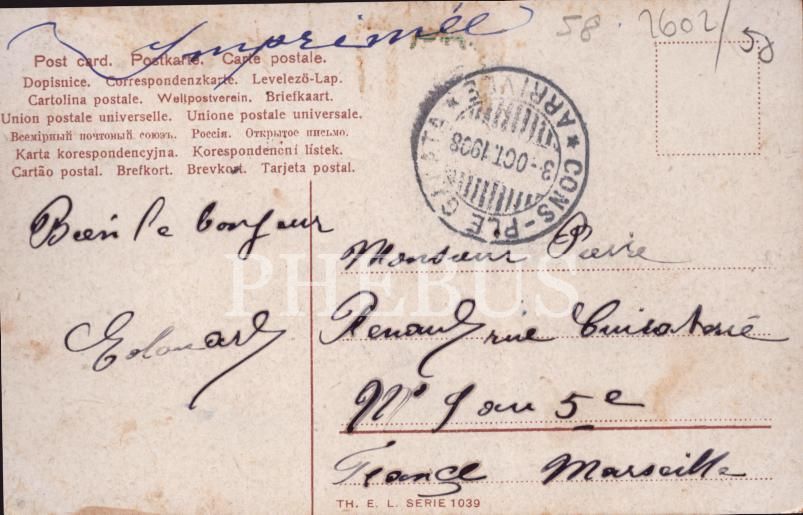 Imprimée
58. 2602/50
Post card. Postkarte. Carte postale.
Dopisnice. Correspondenzkarte. Levelező-Lap.
Cartolina postale. Weltpostverein. Briefkaart.
Union postale universelle. Unione postale universale.
Всемірный почтовый союзъ. Россія. Открытое письмо.
Karta korespondencyjna. Korespondenční lístek.
Cartão postal. Brefkort. Brevkort. Tarjeta postal.
CONS-PLE GALATA ★ ARRIVÉE ★
3-OCT.1908
Bien le bonjour
Edouard
Monsieur Pierre
Renault rue
Nº 9 au 5e
France Marseille
PHEBUS
TH. E. L. SERIE 1039